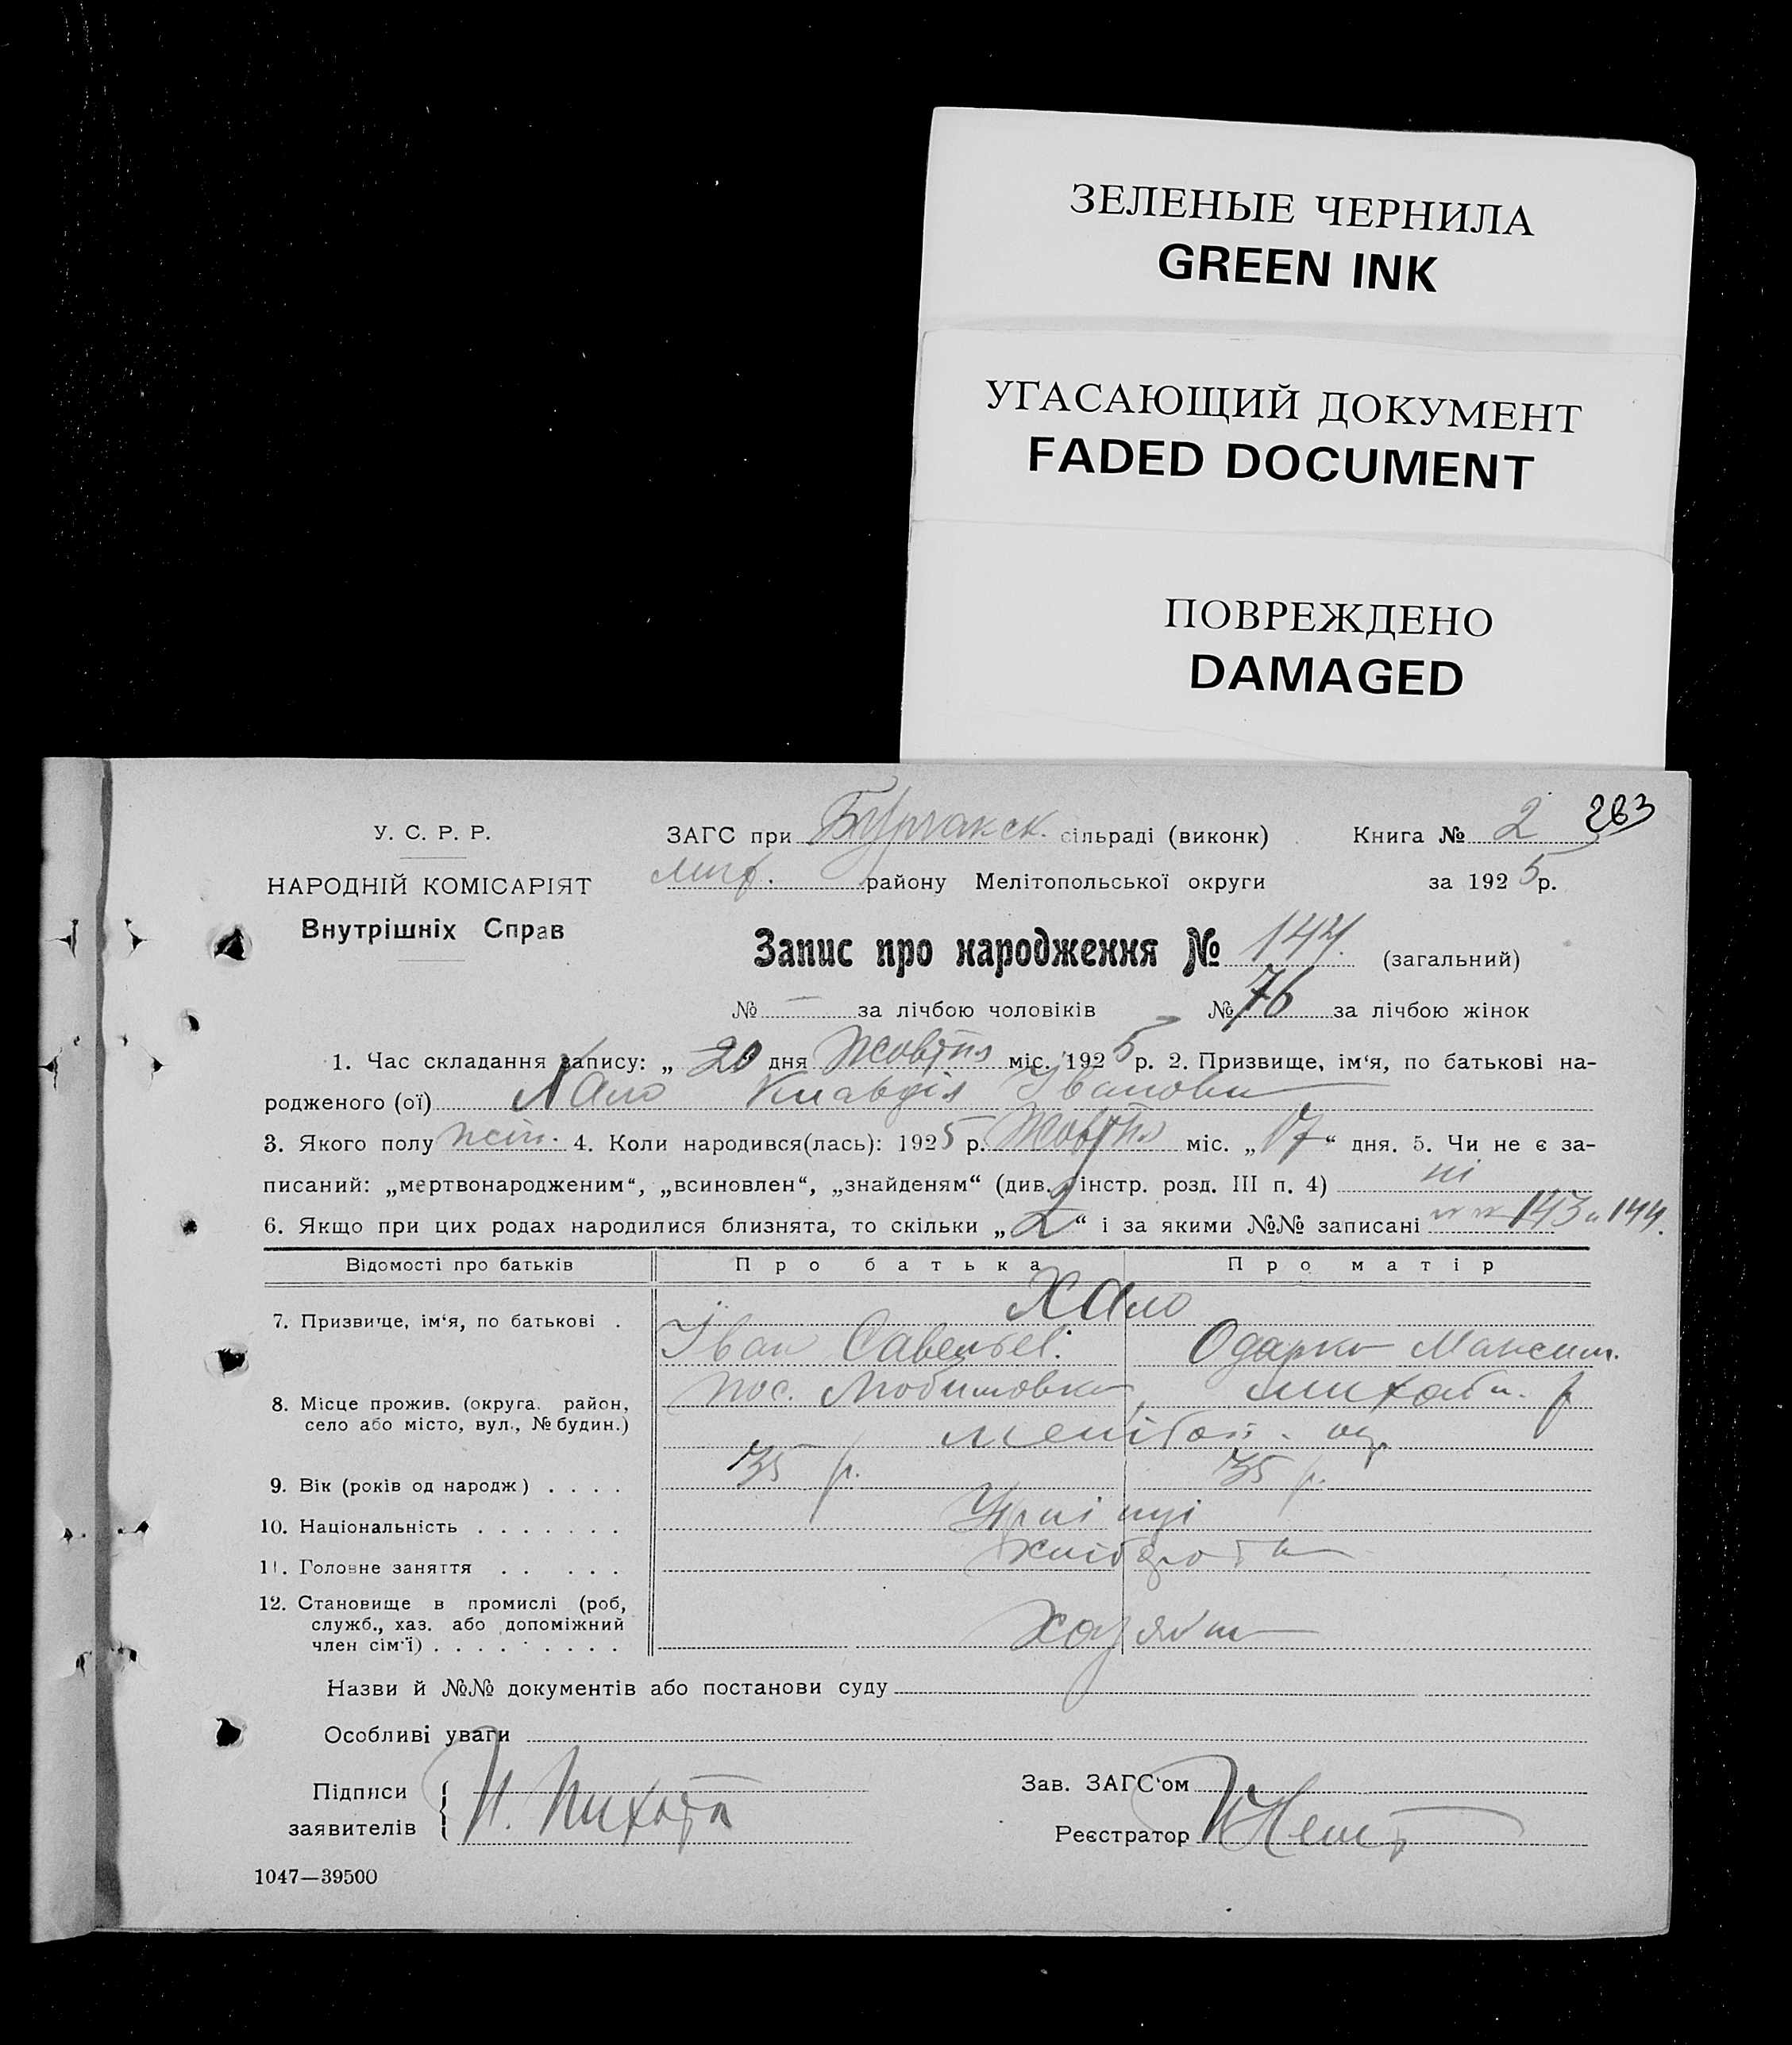 ЗЕЛЕНЫЕ ЧЕРНИЛА
GREEN INK
УГАСАЮЩИЙ ДОКУМЕНТ
FADED DOCUMENT
ПОВРЕЖДЕНО
DAMAGED
263
У. С. Р. Р.
НАРОДНІЙ КОМІСАРІЯТ
Внутрішніх Справ
ЗАГС при сільраді (виконк) Книга № 2
району Мелітопольської округи за 1925 р.
Запис про народження № 144. (загальний)
№ — за лічбою чоловіків № 76 за лічбою жінок
1. Час складання запису: „ 20 дня Жовтня міс. 1925 р. 2. Призвище, ім'я, по батькові на-
родженого (ої) Клавдія Іванови
3. Якого полу жін. 4. Коли народився(лась): 1925 р. Жовтня міс. „17“ дня. 5. Чи не є за-
писаний: „мертвонародженим“, „всиновлен“, „знайденям“ (див. інстр. розд. III п. 4) ні
6. Якщо при цих родах народилися близнята, то скільки „2“ і за якими №№ записані 143 и 144.
Відомості про батьків Про батька Про матір
7. Призвище, ім'я, по батькові .
Іван Савельев. Одарка Максим.
8. Місце прожив. (округа. район,
село або місто, вул., № будин.)
пос.
9. Вік (років од народж) . . . . 35 р. 35 р.
10. Національність . . . . . . . Украінці
11. Головне заняття . . . . . хлібороби
12. Становище в промислі (роб,
служб., хаз. або допоміжний
член сім'ї) . . . . . . . . .
Назви й №№ документів або постанови суду
Особливі уваги
Підписи
заявителів
Зав. ЗАГС'ом
Реєстратор
1047—39500